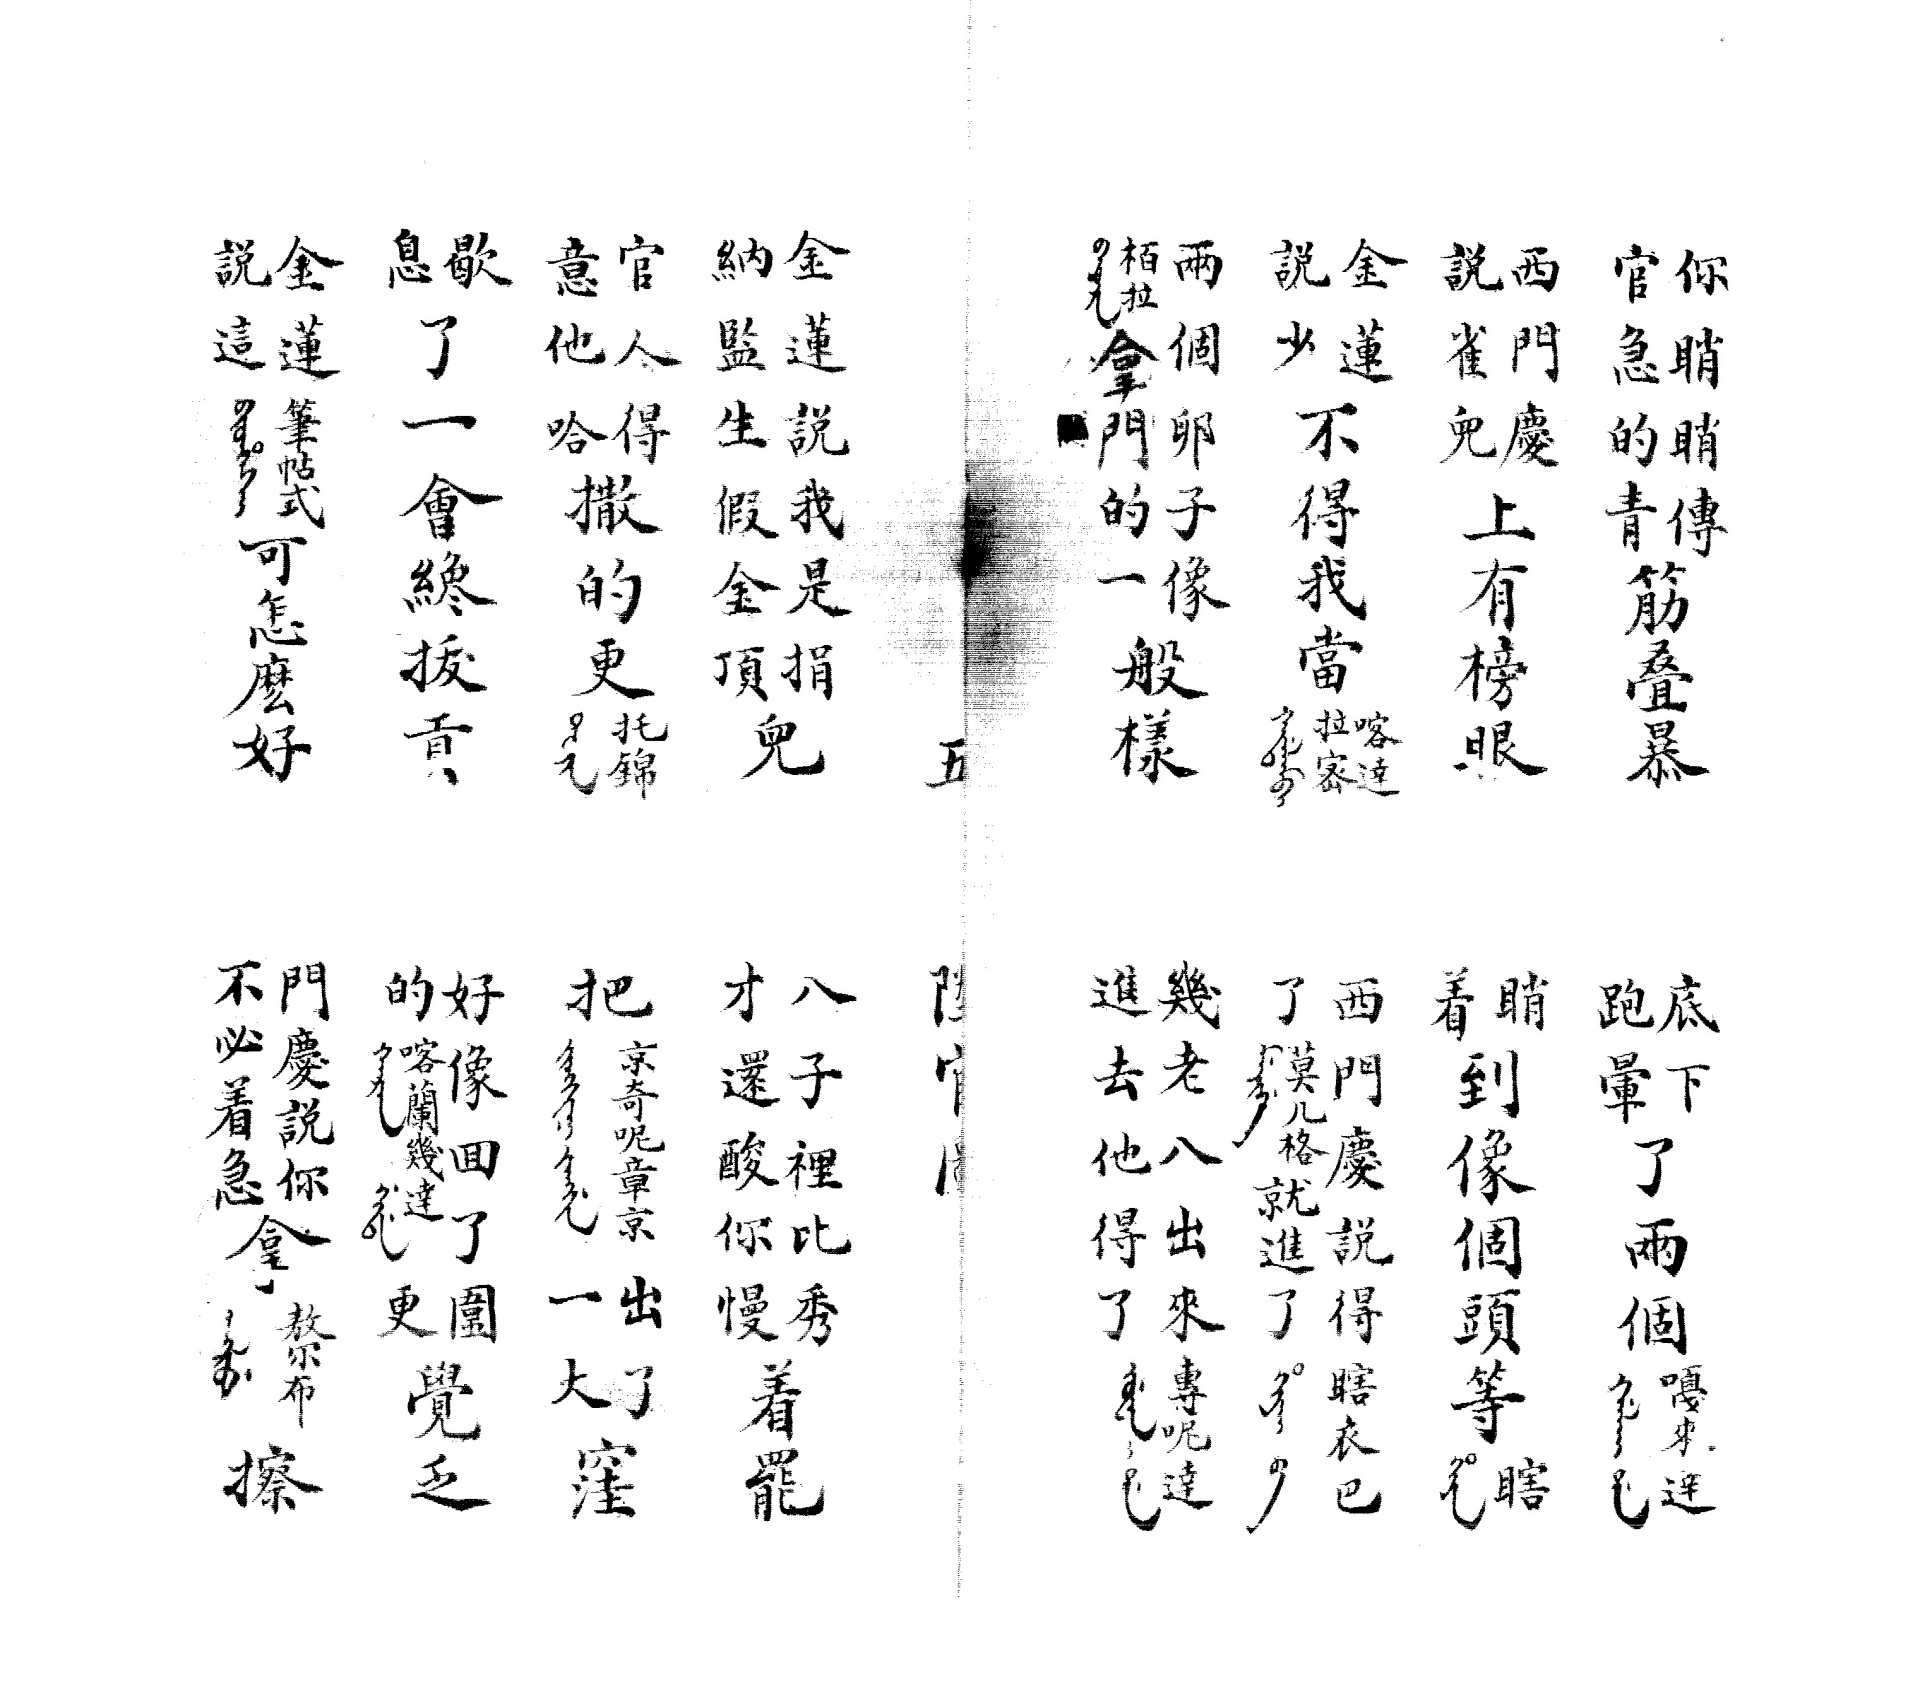 你睄睄傳
官急的青
筋疊暴
底下
跑暈
了兩個
嗄来逹
西門慶
說雀兒
上有榜眼
睄
着
到像個頭等
瞎
金蓮
說少
不得我當
喀逹
拉密
西門慶說得瞎衣巴
了莫兒格就進了
兩個卵子像
栢拉拿門的一
般樣
幾老八出來專呢逹
進去他得了
五
陞官圖
金蓮說我是捐
納監生假金頂
兒
八子裡比秀
才還酸你慢
着罷
官人得
意他哈
撒的更
托錦
把
京奇呢章京出了
一大
窪
歇
息
了一會纔拔貢
好像回了圍
的喀蘭幾逹更
覺乏
金蓮
說這
筆帖式
可怎麽好
門慶說你
不必着急
拿
布
擦